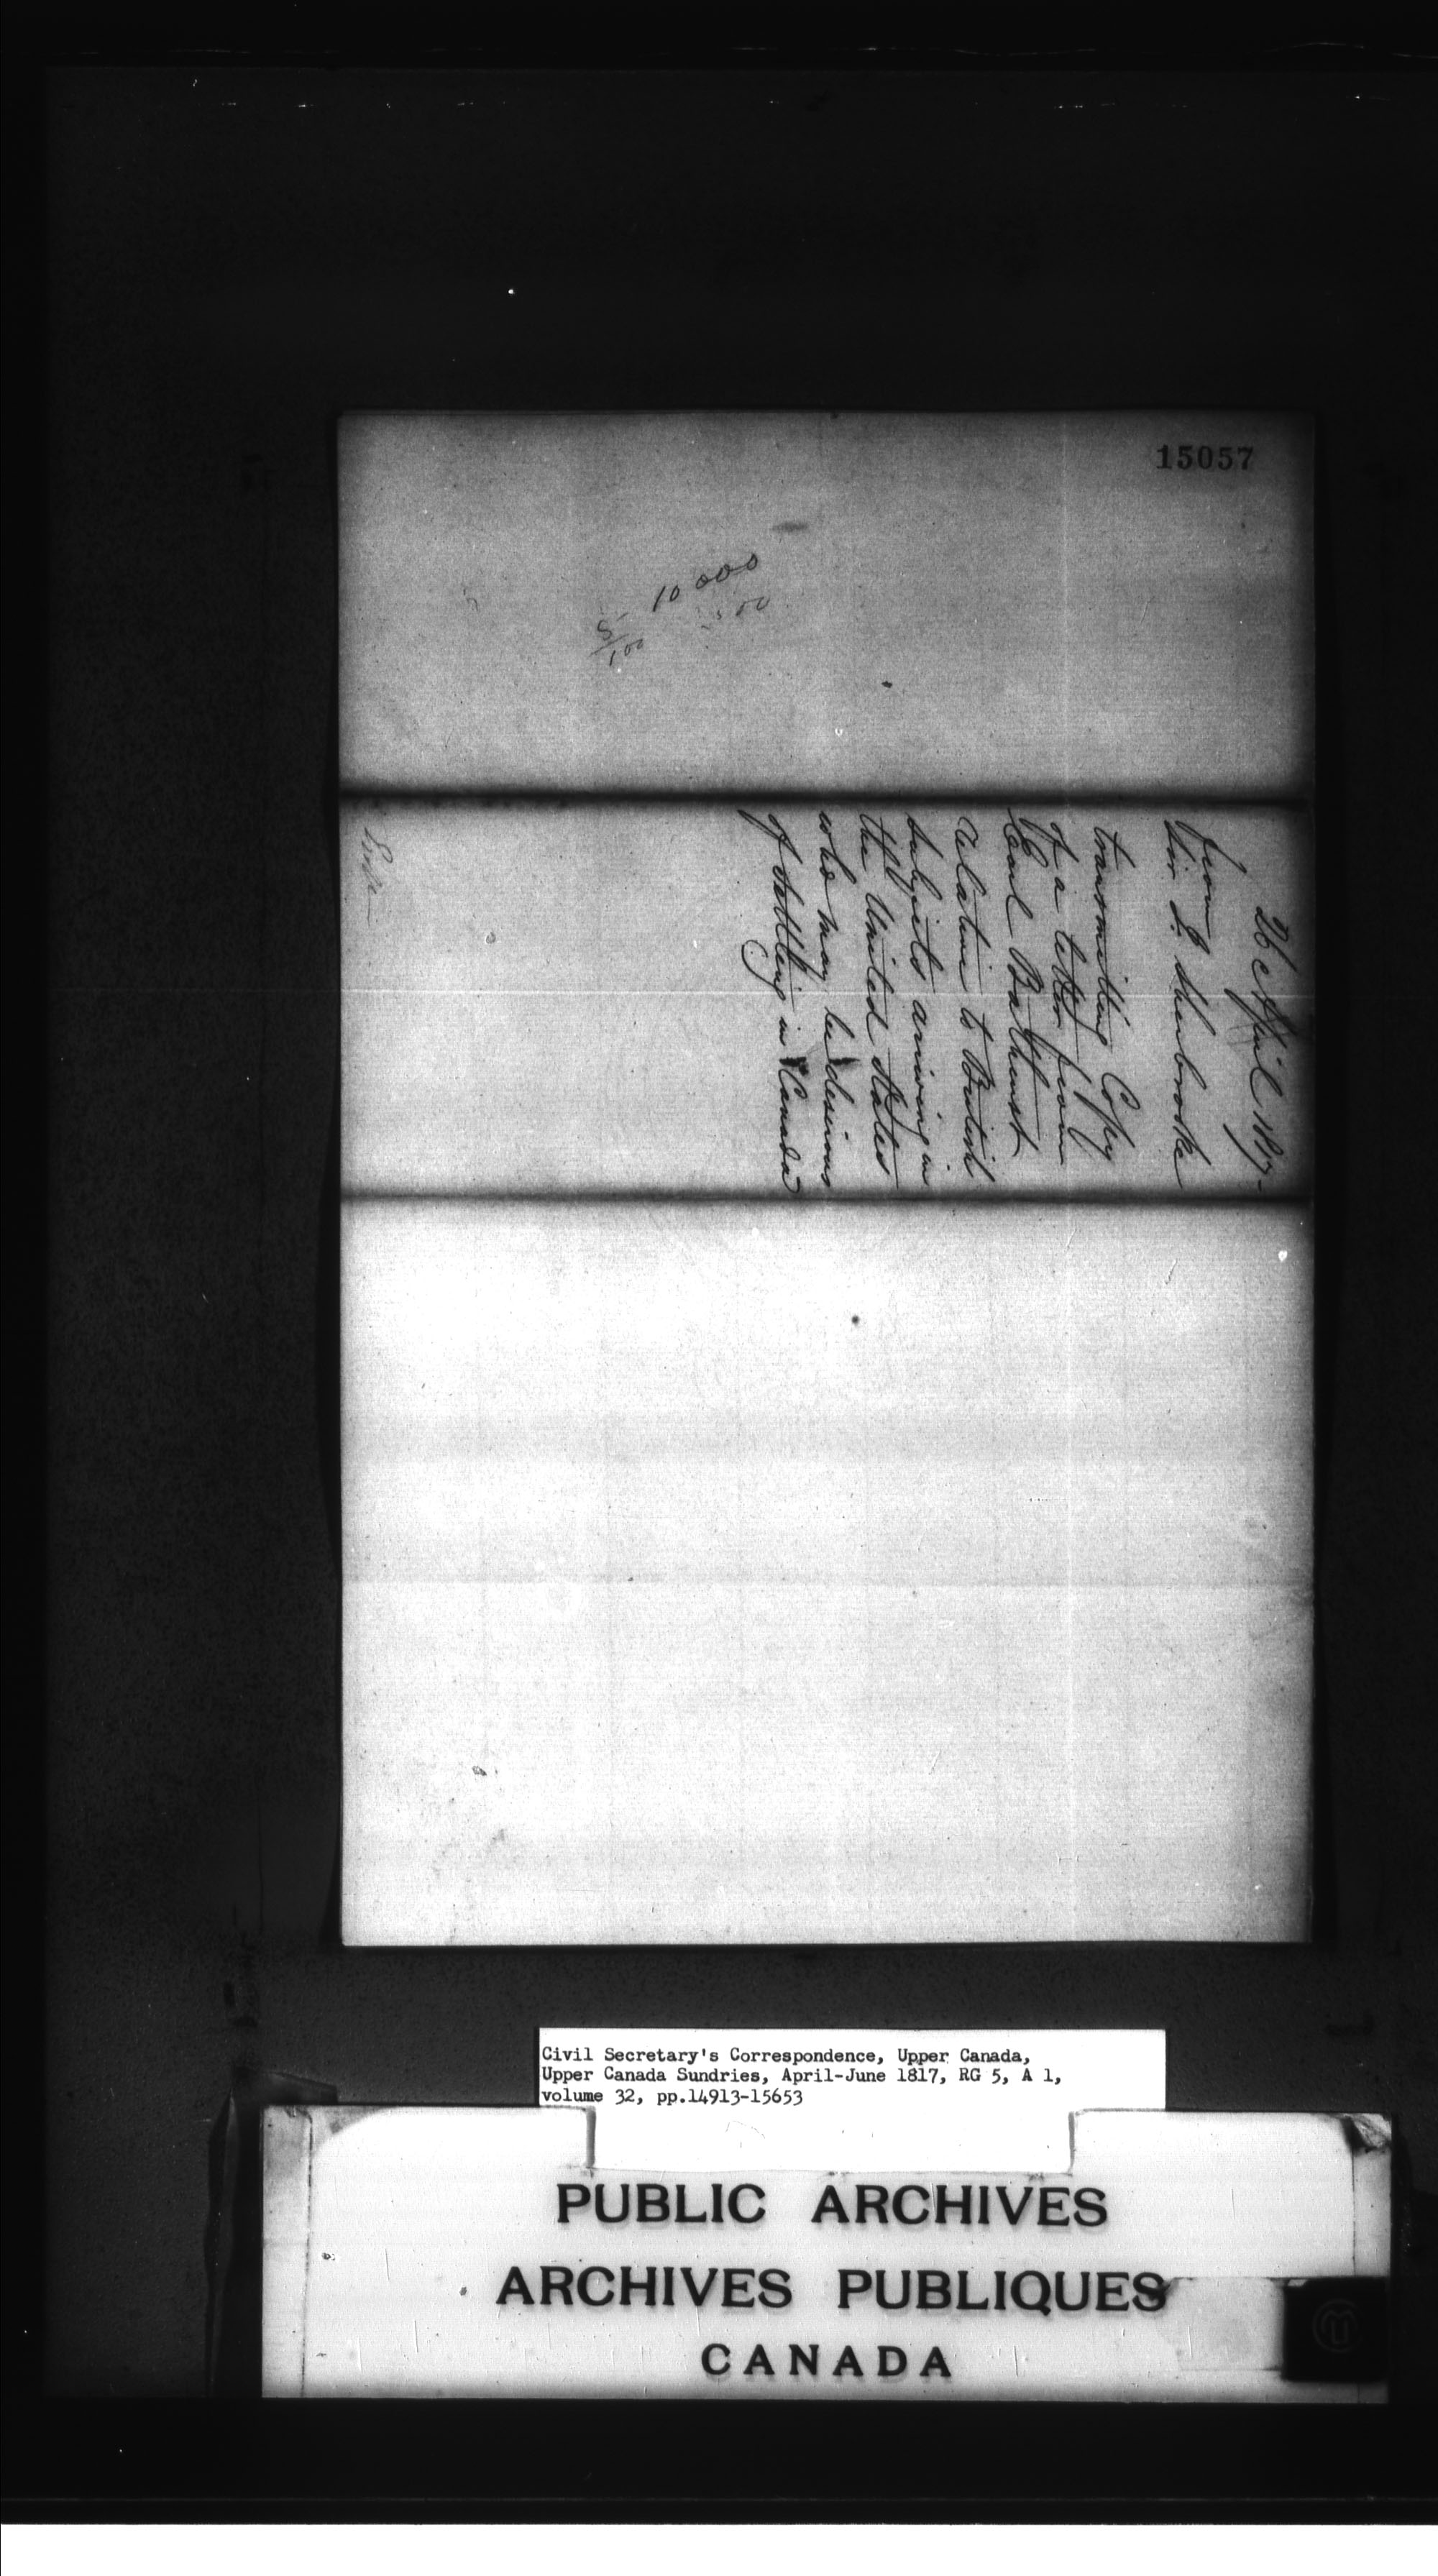 15057
10 000
500
5/100
26 April 1817-
From
Sir J. Sherbrooke
transmitting Copy
of a letter from
Earl Bathurst
relative to British
subjects arriving in
the United States
who may be desirous
of settling in Canada
Civil Secretary's Correspondence, Upper Canada,
Upper Canada Sundries, April-June 1817, RG 5, A 1,
volume 32, pp.14913-15653
PUBLIC ARCHIVES
ARCHIVES PUBLIQUES
CANADA